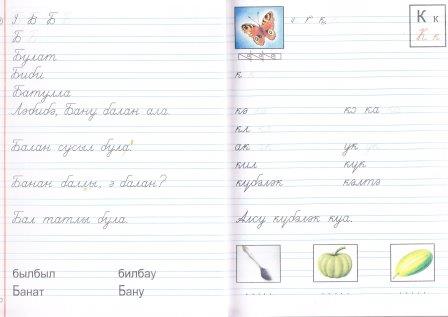 І Б Б
Б
Булат
Биби
Батулла
Ләбибә, Бану балан ала.
Балан сусыл була!
Банан баллы, ә балан?
Бал татлы була.
былбыл билбау
Банат Бану
К к
К к
к
кә кә ка
кл
ак ук
кил күк
күбәләк кәлтә
Алсу күбәләк куа.